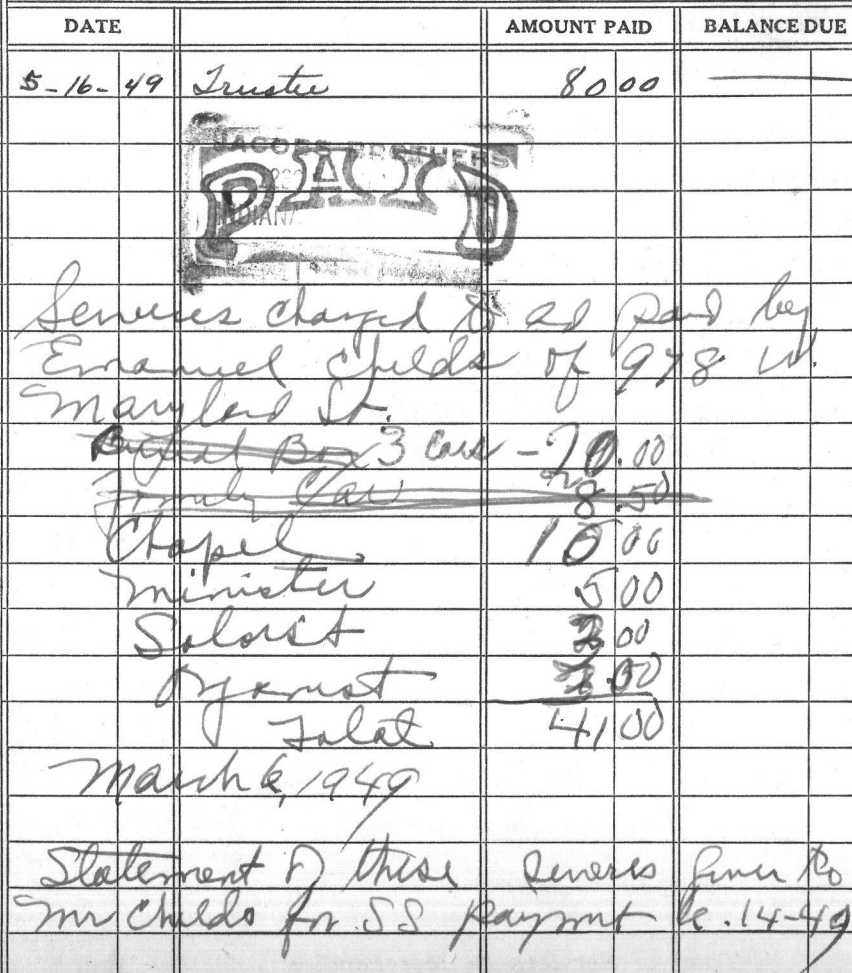 DATE AMOUNT PAID BALANCE DUE
5-16-49 Trustee 80 00
JACOBS BROTHERS
PAID
INDIANA
Services charged to ad paid by
Emanuel Childs of 978 W.
Maryland St.
Burial Box 3 Cars - 20.00
Family Car 8.50
Chapel 10 00
Minister 5 00
Soloist 00
Organist .00
Total 41 00
March 6, 1949
Statement of these services given to
Mr Childs for SS payment 6-14-49